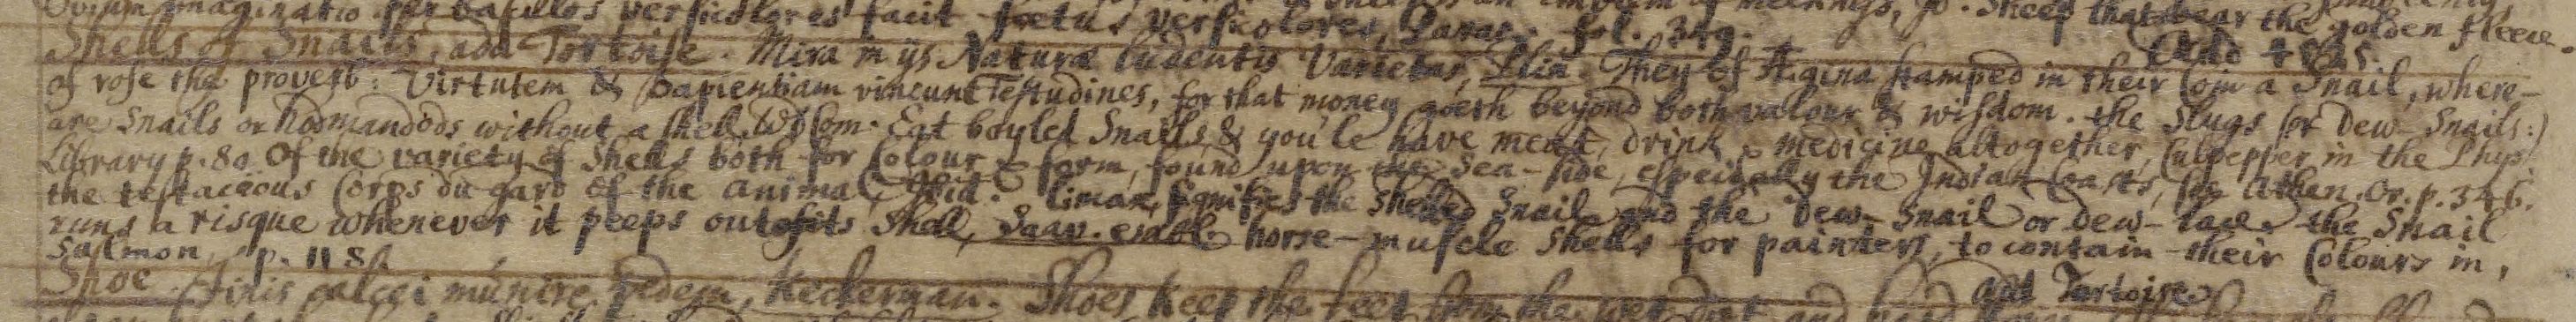 Ovium imaginatio per bacillos versicolores facit foetus versicolores, fol. 349. Sheep that bear the golden fleece.
Shells of Snails, add Tortoise. Mira in ijs Naturæ ludentis Varietas, Plin. They of Ægina stamped in their Coin a Snail, where-
of rose the proverb: Virtutem & Sapientiam vincunt Testudines, for that money goeth beyond both valour & wisdom. the Slugs (or Dew-Snails:)
are Snails or hodmandods without a shell, Wilson. Eat boyled Snails, & you'le have meat, drink & medicine altogether, Culpepper in the Phys:
Library p. 80. Of the variety of Shells both for Colour & form, found upon the Sea-side, especially the Indian Coasts, see Athen. Or. p. 346.
the testaceous Corps du gard of the animal, ibid. limax, signifies the shelled Snail and the Dew-Snail or Dew- the Snail
runs a risque whenever it peeps out of its Shell, horse-muscle Shells for painters, to contain their Colours in,
Salmon, p.
add Tortoise
Shoe. Finis calcei munire pedem, Keckerman. Shoes keep the feet from the wet, dirt and